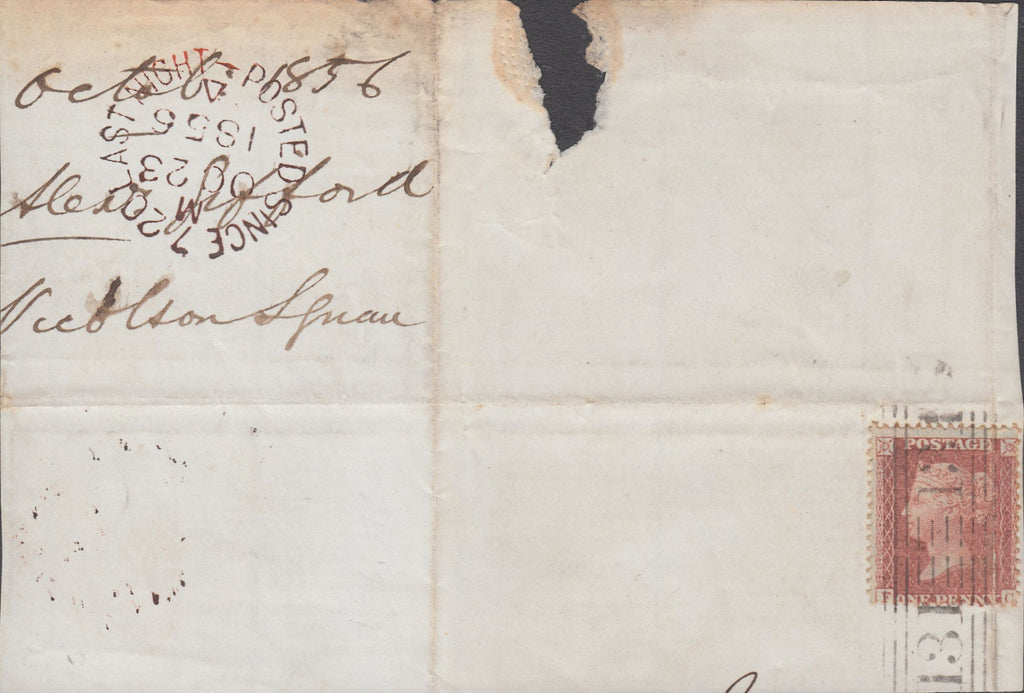 October 1856
Alexr Gifford
Nicolson Square
POSTED SINCE 7.20 LAST NIGHT
M
OC 23
1856
A
POSTAGE
F ONE PENNY G
131